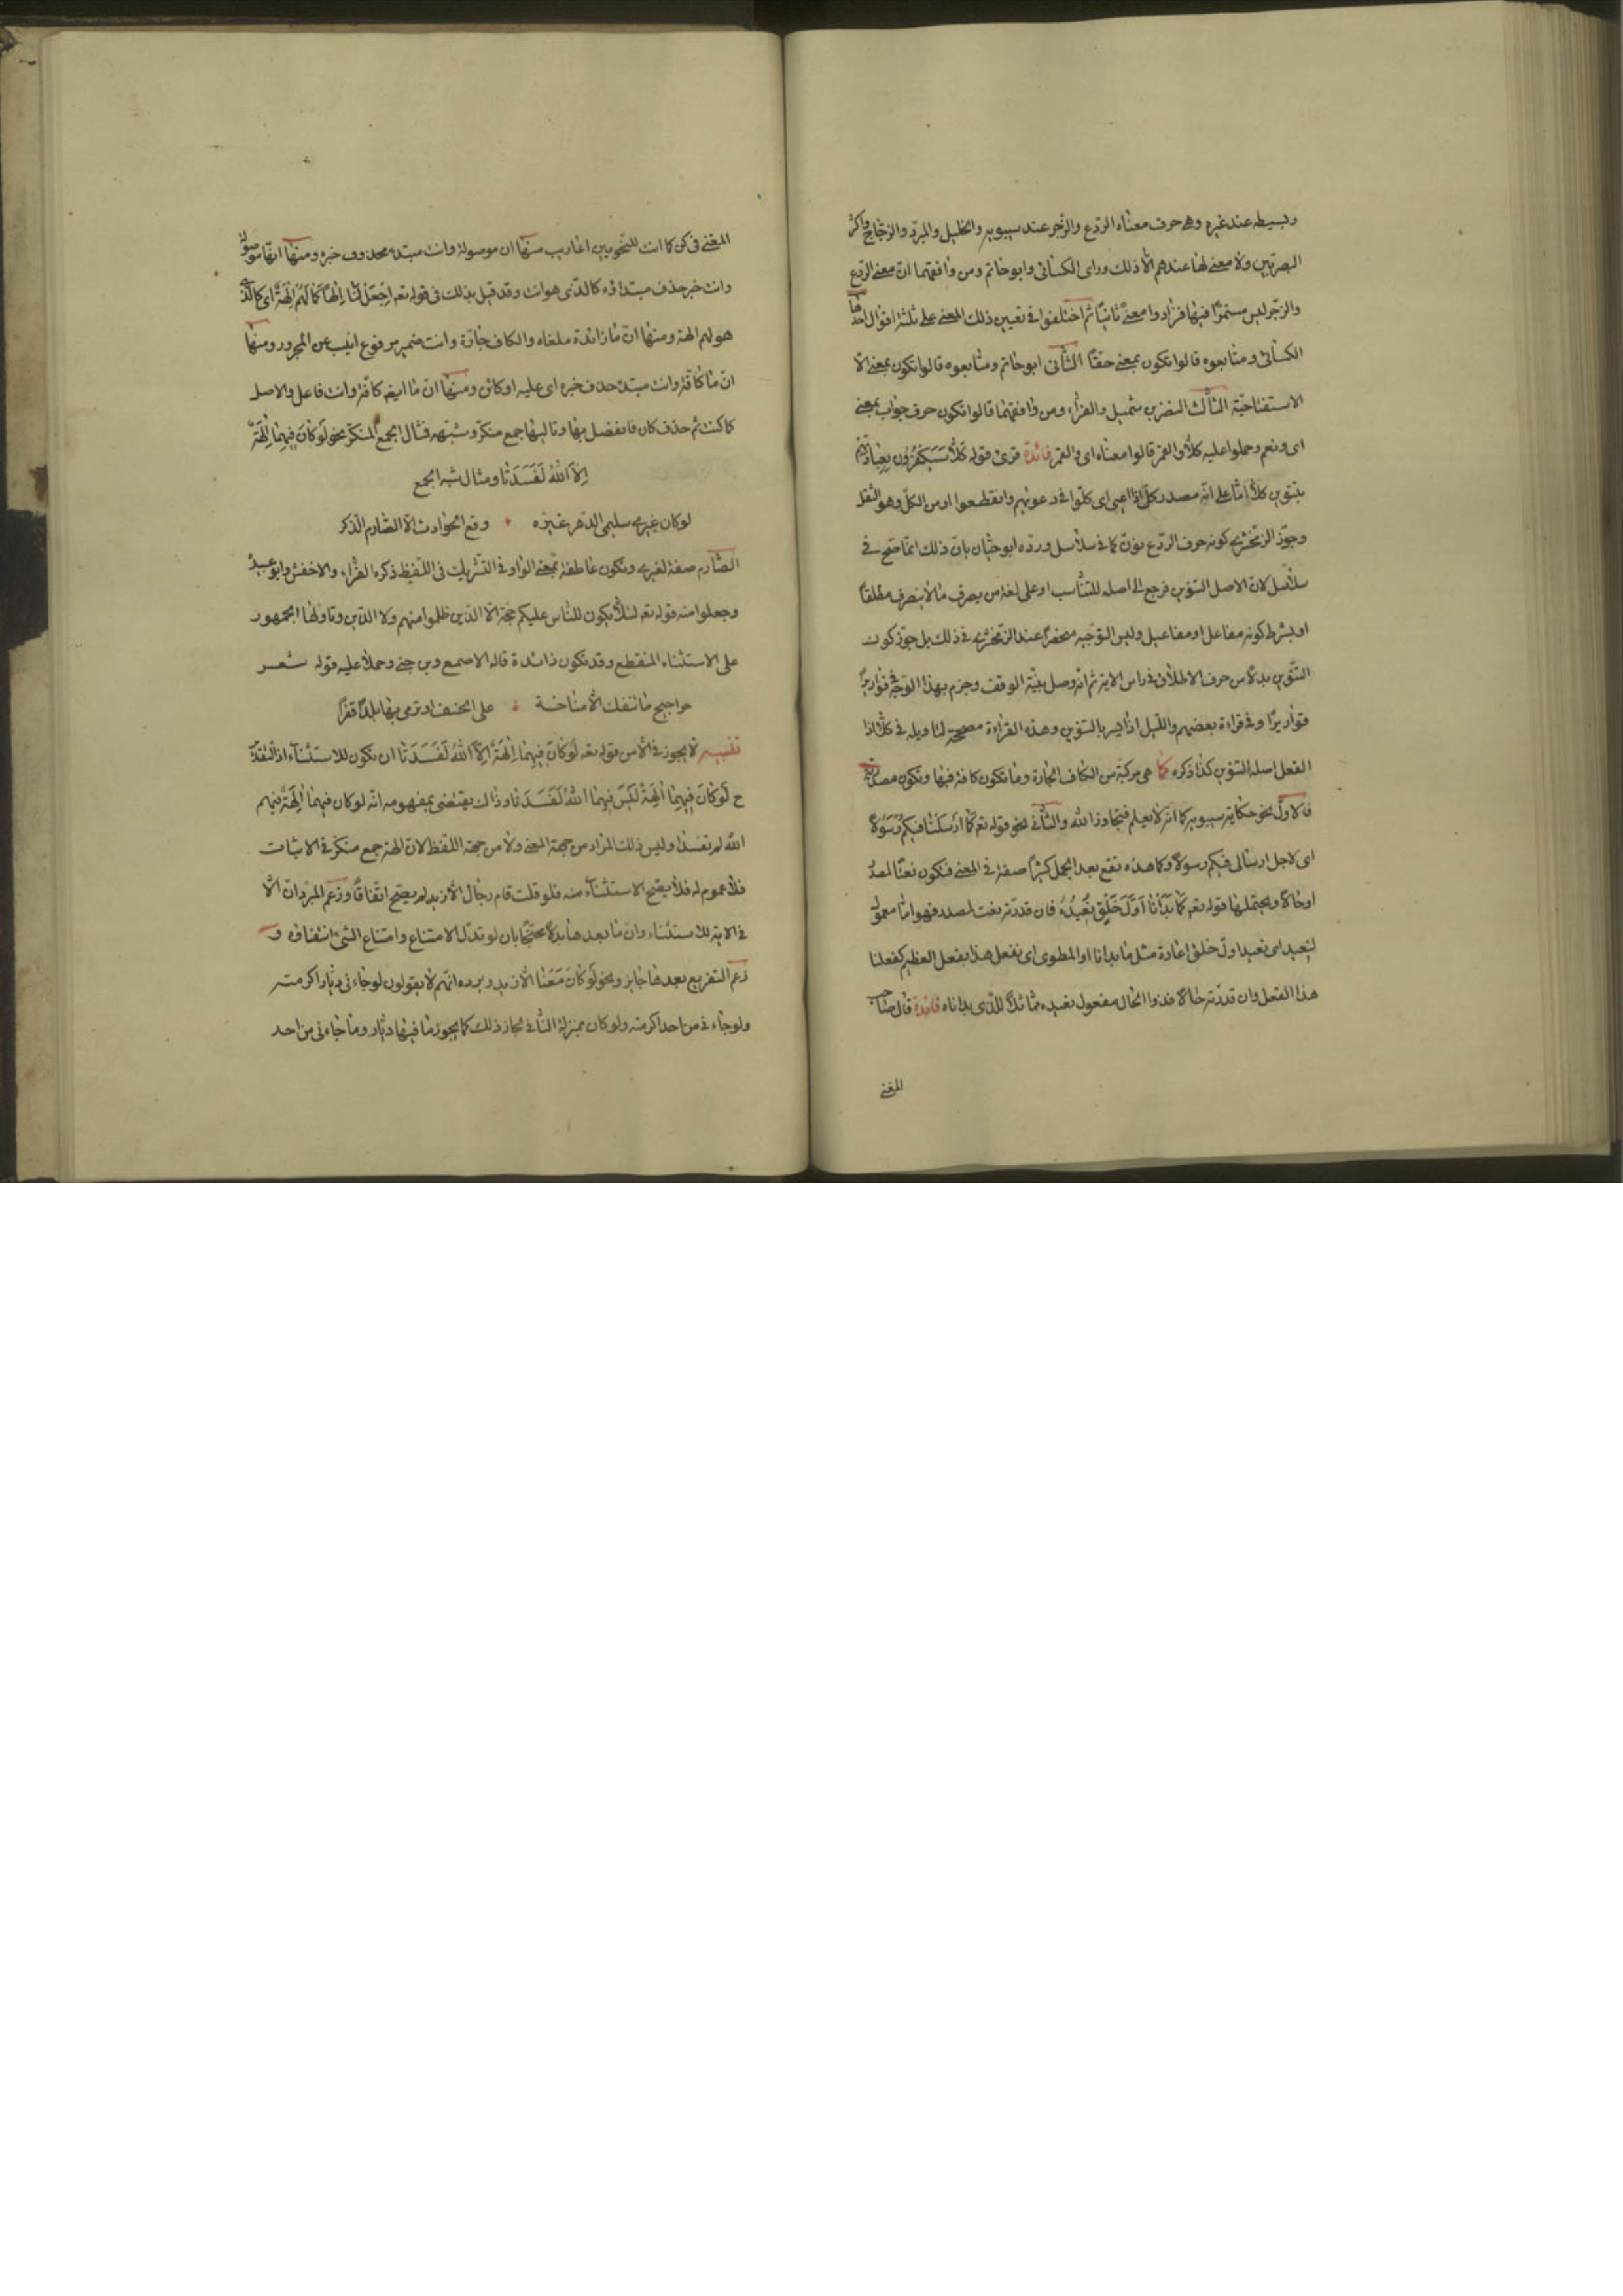 وبسيطه عند غيره وهى حرف معناه الردع والزجر عند سيبويه والخليل والمبرد والزجاج واكثر
البصريين ولا معنى لها عندهم الا ذلك وراى الكسائى وابو حاتم ومن وافقهما ان معنى الردع
والزجر ليس مستمرا فيها فزادوا معنى ثانيا ثم اختلفوا فى تعيين ذلك المعنى على ثلثة اقوال احدها
الكسائى ومتابعوه قالوا تكون بمعنى حقا الثانى ابو حاتم ومتابعوه قالوا تكون بمعنى الا
الاستفتاحية الثالث النضر بن شميل والفراء ومن وافقهما قالوا تكون حرف جواب بمعنى
اى ونعم وحملوا عليه كلا والقمر قالوا معناه اى والقمر فائدة قرئ قوله كَلَّا سَيَكْفُرُونَ بِعِبَادَتِهِمْ
بتنوين كلا اما على انه مصدر كلّ اذا اعيى اى كلّوا فى دعوتهم وانقطعوا او من الكلّ وهو الثقل
وجوّز الزمخشرى كونه حرف الردع نوّن كما فى سلاسل وردّه ابو حيان بان ذلك انما صح فى
سلاسل لان الاصل التنوين فرجع الى اصله للتناسب او على لغة من يصرف ما لا ينصرف مطلقا
او بشرط كونه مفاعل او مفاعيل وليس التوجيه منحصرا عند الزمخشرى فى ذلك بل جوّز كون
التنوين بدلا من حرف الاطلاق فى راس الاية ثم انه وصل بنية الوقف وجزم بهذا الوجه فى قواريرا
قواريرا وفى قراءة بعضهم والليل اذا يسر بالتنوين وهذه القراءة مصححة لتاويله فى كلا اذا
الفعل اصله التنوين كذا ذكره كما هى مركبة من الكاف الجارة وما تكون كافة فيها وتكون مصدرية
فالاول نحو حكاية سيبويه كما انه لا يعلم فتجاوز الله والثانى نحو قوله تعه كَمَا اَرْسَلْنَا فِيكُمْ رَسُولًا
اى لاجل ارسالى فيكم رسولا وكما هذه تقع بعد الجمل كثيرا صفة فى المعنى فتكون نعتا لمصدر
او حالا ويحتملها قوله تعه كَمَا بَدَأْنَا اَوَّلَ خَلْقٍ نُعِيدُهُ فان قدرته نعت لمصدر فهو اما معمول
لنعيد اى نعيد اول خلق اعادة مثل ما بدانا او المطوى اى نفعل هذا بفعل العظيم كفعلنا
هذا الفعل وان قدرته حالا فذوا الحال مفعول نعيده مماثلا للذى بداناه فائدة قال صاحب
المغنى
المغنى فى كن كما انت للنحويين اعاريب منها ان موصولة وانت مبتدء محذوف خبره ومنها انها موصولة
وانت خبر حذف مبتداؤه كالذى هو انت وقد قيل بذلك فى قوله تعه اِجْعَلْ لَنَا اِلٰهًا كَمَا لَهُمْ اٰلِهَةٌ اى كالذى
هو لهم الهة ومنها ان ما زائدة ملغاه والكاف جارّة وانت ضمير مرفوع انيب عن المجرور ومنها
ان ما كافة وانت مبتدء حذف خبره اى عليه او كائن ومنها ان ما ايضه كافة وانت فاعل والاصل
كما كنت ثم حذف كان فانفصل
بها وتاليها جمع منكر وشبهه فمثال الجمع المنكر نحو لَوْ كَانَ فِيهِمَا اٰلِهَةٌ
اِلَّا اللّٰهُ لَفَسَدَتَا ومثال شبه الجمع
لو كان غيرى سليمى الدهر غيّره وقع الحوادث الا الصارم الذكر
الصارم صفة لغيرى وتكون عاطفة بمعنى الواو فى التشريك فى اللفظ ذكره الفراء والاخفش وابو عبيدة
وجعلوا منه قوله تعه لئلا يكون للناس عليكم حجة الا الذين ظلموا منهم ولا الذين وتاولها الجمهور
على الاستثناء المنقطع وقد تكون زائدة قاله الاصمع وبن جنى وحملا عليه قوله شعر
حراجيج ما تنفك الا مناخة على الخسف او ترمى بها بلدا قفرا
تنبيه لا يجوز فى الا من قوله تعه لَوْ كَانَ فِيهِمَا اٰلِهَةٌ اِلَّا اللّٰهُ لَفَسَدَتَا ان تكون للاستثناء اذ التقدير
ح لَوْ كَانَ فِيهِمَا اٰلِهَةٌ لَيْسَ فِيهِمَا اللّٰهُ لَفَسَدَتَا وذاك يقتضى بمفهومه انه لو كان فيهما اٰلِهَةٌ فيهم
الله لم تفسدا وليس ذلك المراد من جهة المعنى ولا من جهة اللفظ لان الهة جمع منكر فى الاثبات
فلا عموم له فلا يصح الاستثناء منه فلو قلت قام رجال الا زيد لم يصح اتفاقا وزعم المبرد ان الا
فى الاية للاستثناء وان ما بعدها بدلا محتجّا بان لو تدل الامتناع وامتناع الشئ انتفاؤه و
زعم التفريع بعدها جايز ونحو لو كان مَعَنَا الا زيد ويرده انهم لا يقولون لو جاءنى ديّار اكرمته
ولو جاءنى من احد اكرمته ولو كان بمنزلة النافى لجاز ذلك كما يجوز ما فيها ديّار وما جاءنى من احد